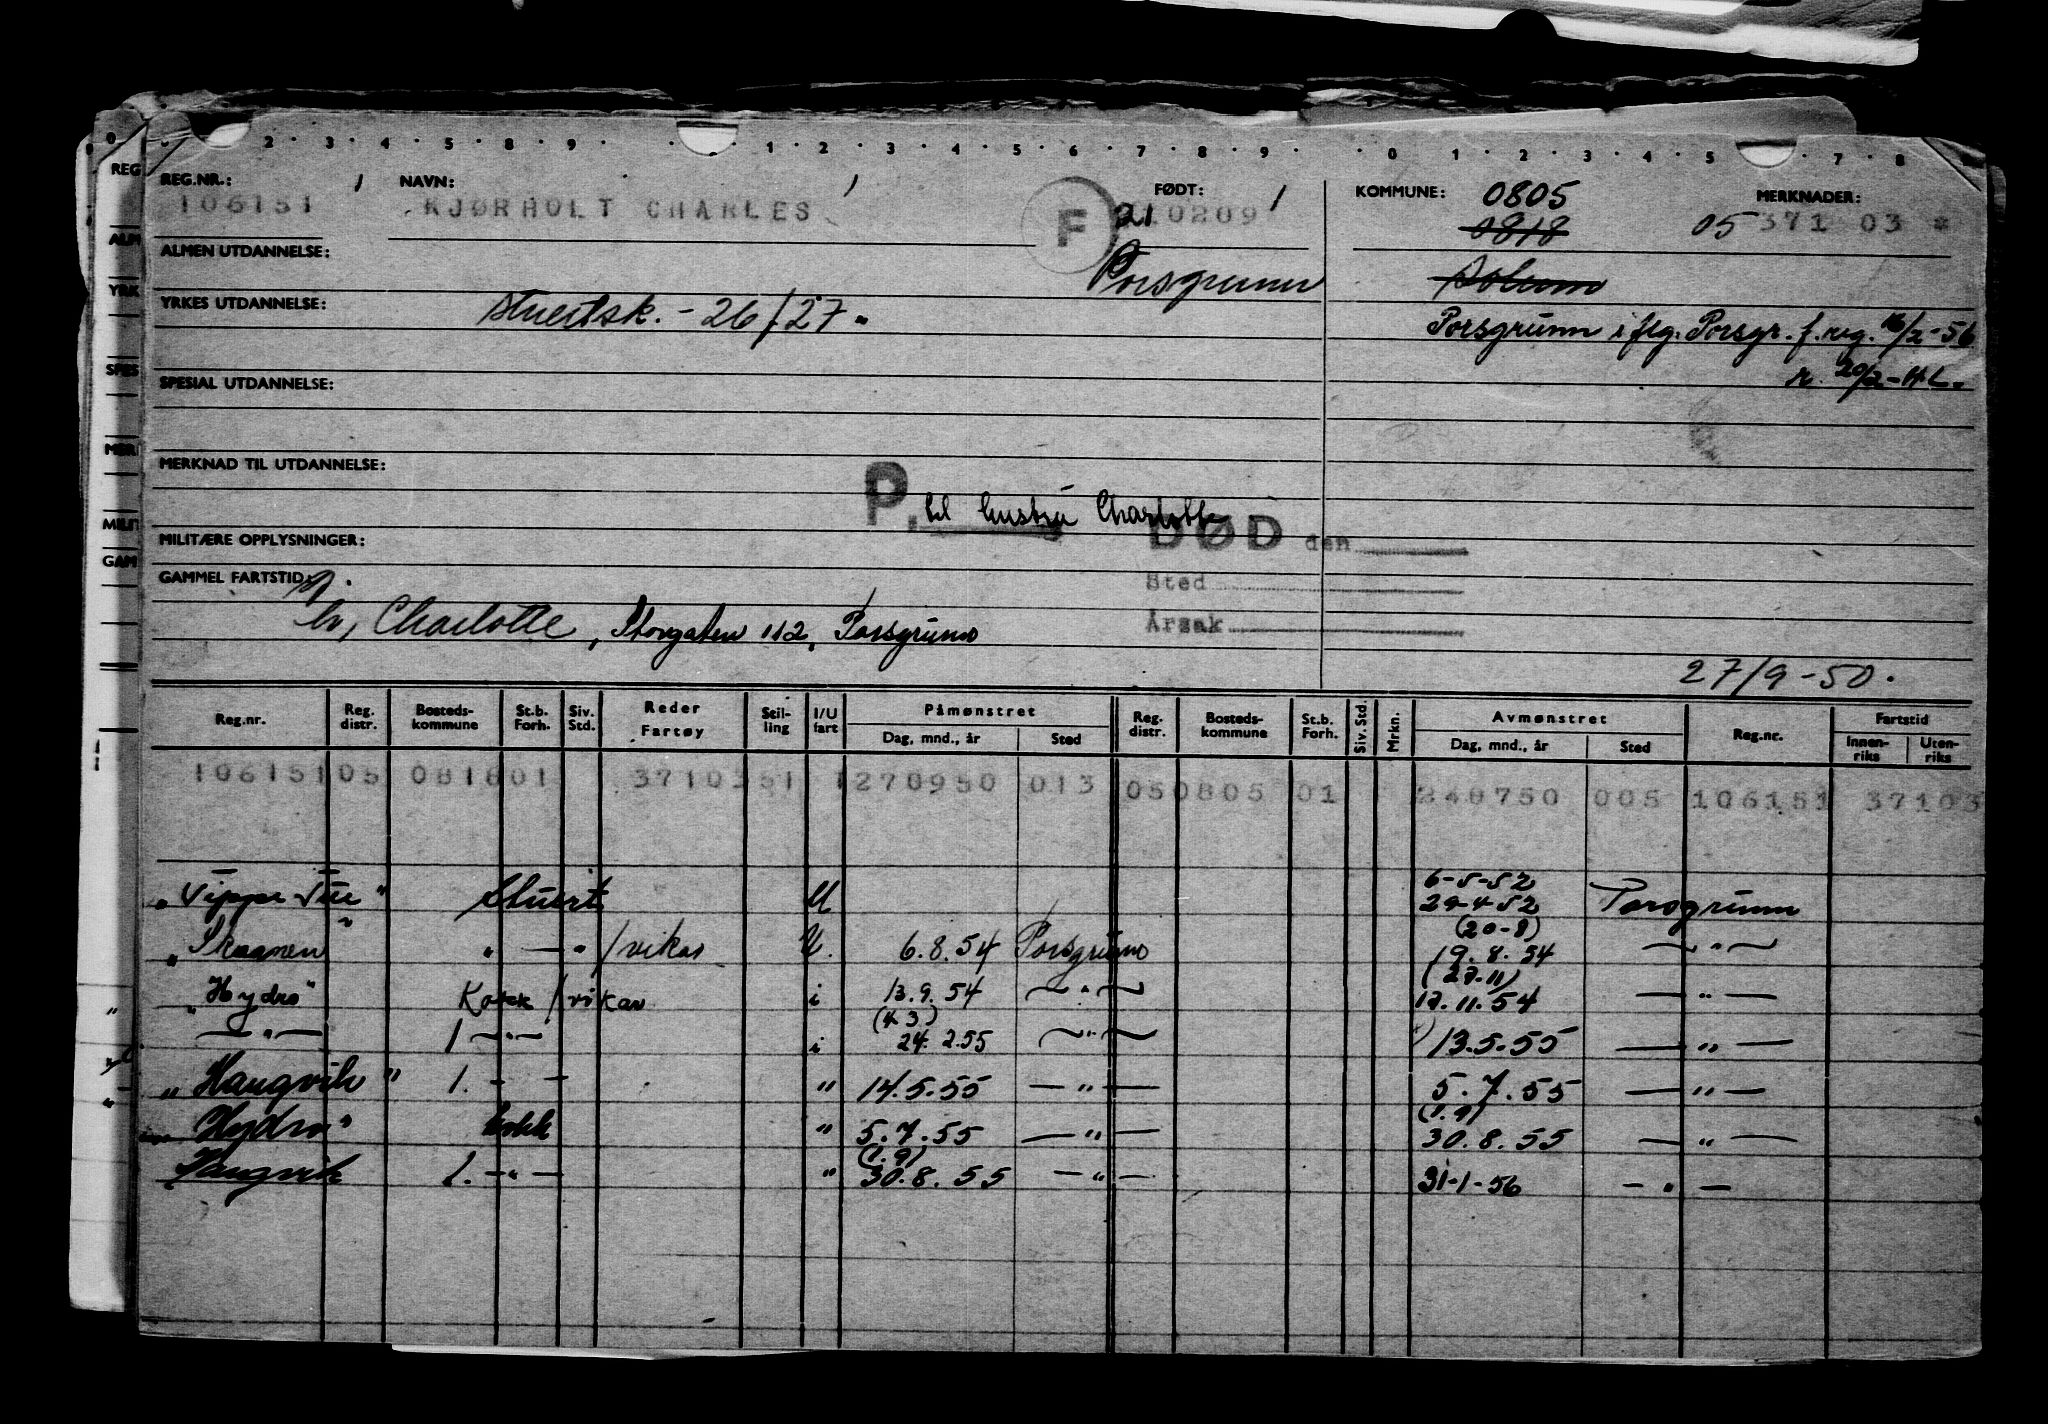 REG.NR.: NAVN: FØDT: KOMMUNE: 0805 MERKNADER:
106151 KJØRHOLT CHARLES F 210209 0818 05 371 03 *
ALMEN UTDANNELSE: Porsgrunn Solum
YRKES UTDANNELSE: stuertsk. - 26/27. Porsgrunn iflg. Porsgr. f. reg. 16/2-56
20/2-HL.
SPESIAL UTDANNELSE:
MERKNAD TIL UTDANNELSE:
P. til hustru Charlotte
MILITÆRE OPPLYSNINGER: DØD den
GAMMEL FARTSTID: Sted
h, Charlotte, Storgaten 112, Porsgrunn Årsak
27/9-50.
Reg.nr. Reg. distr. Bosteds-kommune St.b. Forh. Siv. Std. Reder Fartøy Stil-ling I/U fart Påmønstret Dag, mnd., år Sted Reg. distr. Bosteds-kommune St.b. Forh. Siv. Std. Mrkn. Avmønstret Dag, mnd., år Sted Reg.nr. Fartstid Innen-riks Uten-riks
106151 05 0818 01 3710351 1 270950 013 05 0805 01 240750 005 106151 37103
6-5-52
" Vippe Tue " Stuert U 29-4-52 Porsgrunn
(20-8)
" Skagnen " " — " /vikar U. 6.8.54 Porsgrunn 19.8.54 — " —
(27.11)
" Hydro " Kokk /vikar i 13.9.54 — " — 17.11.54 — " —
(4.3)
— " — 1 — " — i 24.2.55 — " — 13.5.55 — " —
" Haugvik " 1. - — " 14.5.55 — " — 5.7.55 — " —
(1.9)
Hydro " kokk " 5.7.55 — " — 30.8.55 — " —
(1.9)
Haugvik 1. — " — " 30.8.55 — " — 31-1-56 — " —